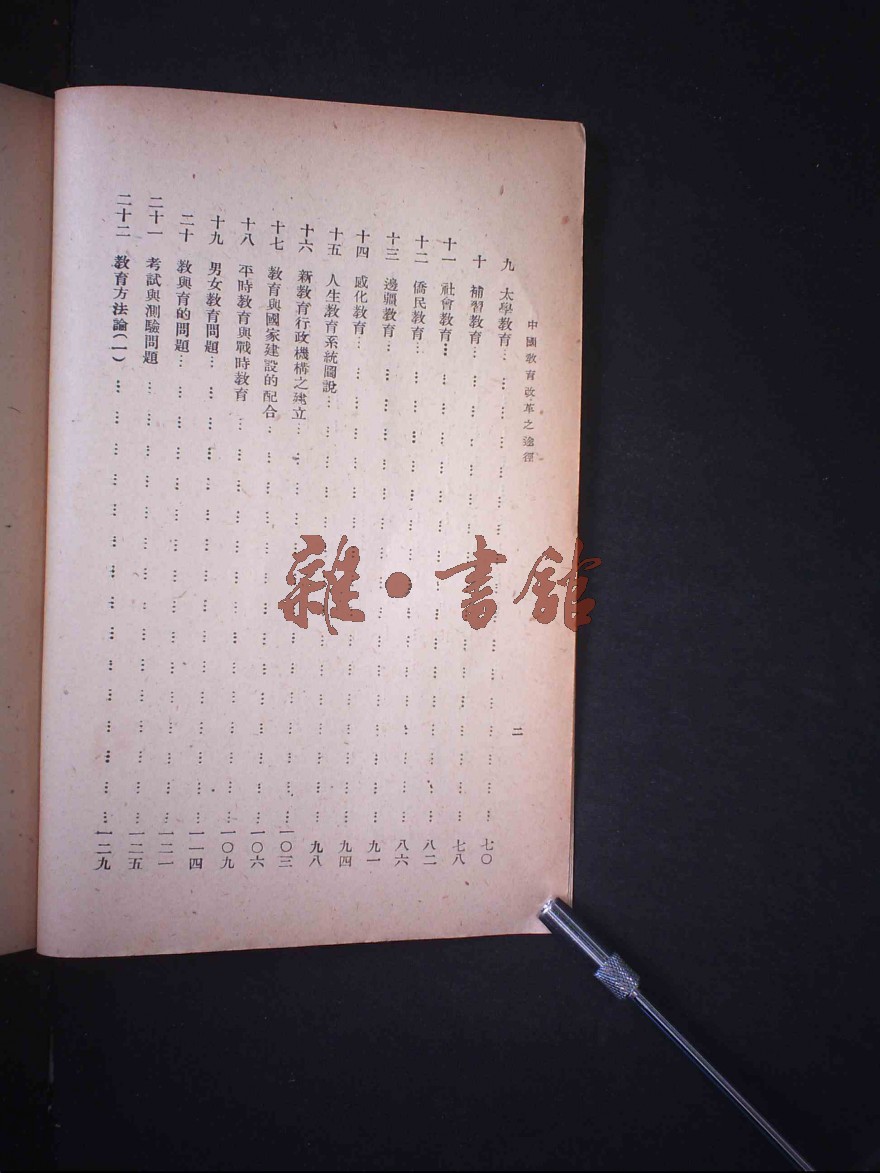 中國教育改革之途徑
二
九 太學教育……七〇
十 補習教育……七八
十一 社會教育……八二
十二 僑民教育……八六
十三 邊疆教育……九一
十四 感化教育……九四
十五 人生教育系統圖說……九八
十六 新教育行政機構之建立……一〇三
十七 教育與國家建設的配合……一〇六
十八 平時教育與戰時教育……一〇九
十九 男女教育問題……一一四
二十 教與育的問題……一二一
二十一 考試與測驗問題……一二五
二十二 教育方法論(一)……一二九
雜·書館